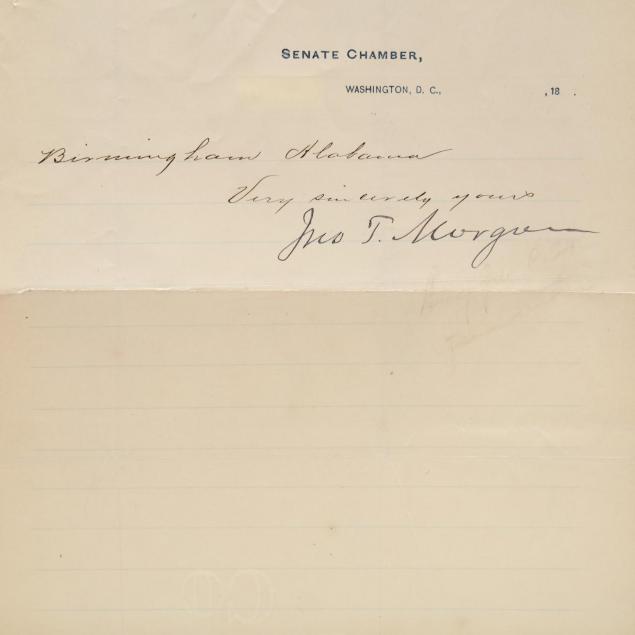 SENATE CHAMBER,
WASHINGTON, D. C., , 18 .
Birmingham Alabama
Very sincerely yours
Jno T. Morgan